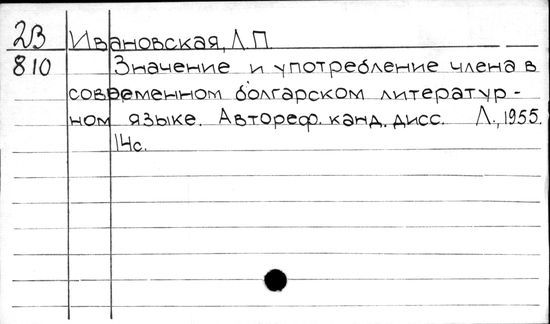 2В Ивановская, Л.П.
810 Значение и употребление члена в
современном болгарском литератур-
ном языке. Автореф. канд. дисс. Л., 1955.
14с.